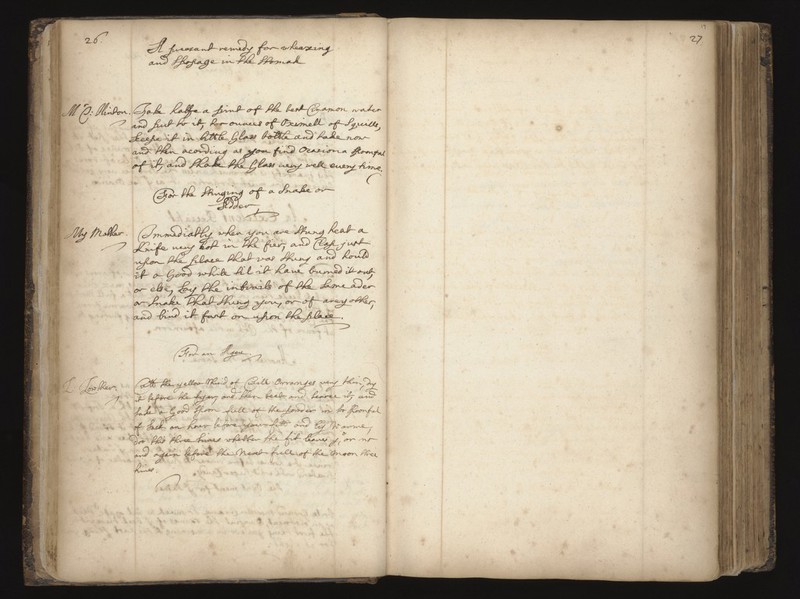 26
27
A pleasant remedy for wheasing
and stopage in the Stomak
Take halfe a pint of the best Cynamon water
and put to it two ounces of Oximell of Squills,
keepe it in little Glass bottle and take now
and then acording as you find Ocasion a spoonful
of it, and shake the Glass very well every time.
For the stinging of a Snake or
Adder
My Mother
Immediatly when you are stung heat a
knife very hot in the fier, and Clap just
upon the place that was stung and hould
it a Good while til it have burned it out,
or else, Lay the intrails of the same ader
or snake that stung you, or of any other,
and bind it fast on upon the place.
For an Ague
the yellow Rind of Orranges very thin, dry
it before the fyer, and then beat and searce it, and
take a Good spoon full of the powder in 6 spoonful
of Sack an hour before your fit and Ly warme,
doe this three times whether the fit leaves y or no
and again before the Next full of the Moon three
times.